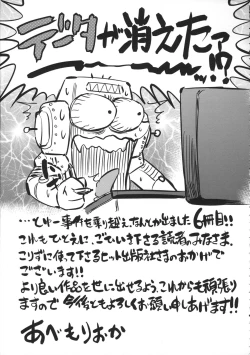 データが消えたァ…!!?
…という事件を乗り越え、なんとか出ました6冊目!!
これもひとえに、ごひいき下さる読者のみなさま、
こりずに使って下さるヒット出版社さまのおかげで
ございます!!
より良い作品を世に出せるよう、これからも頑張り
ますので今後ともよろしくお願い申しあげます!!
あべもりおか